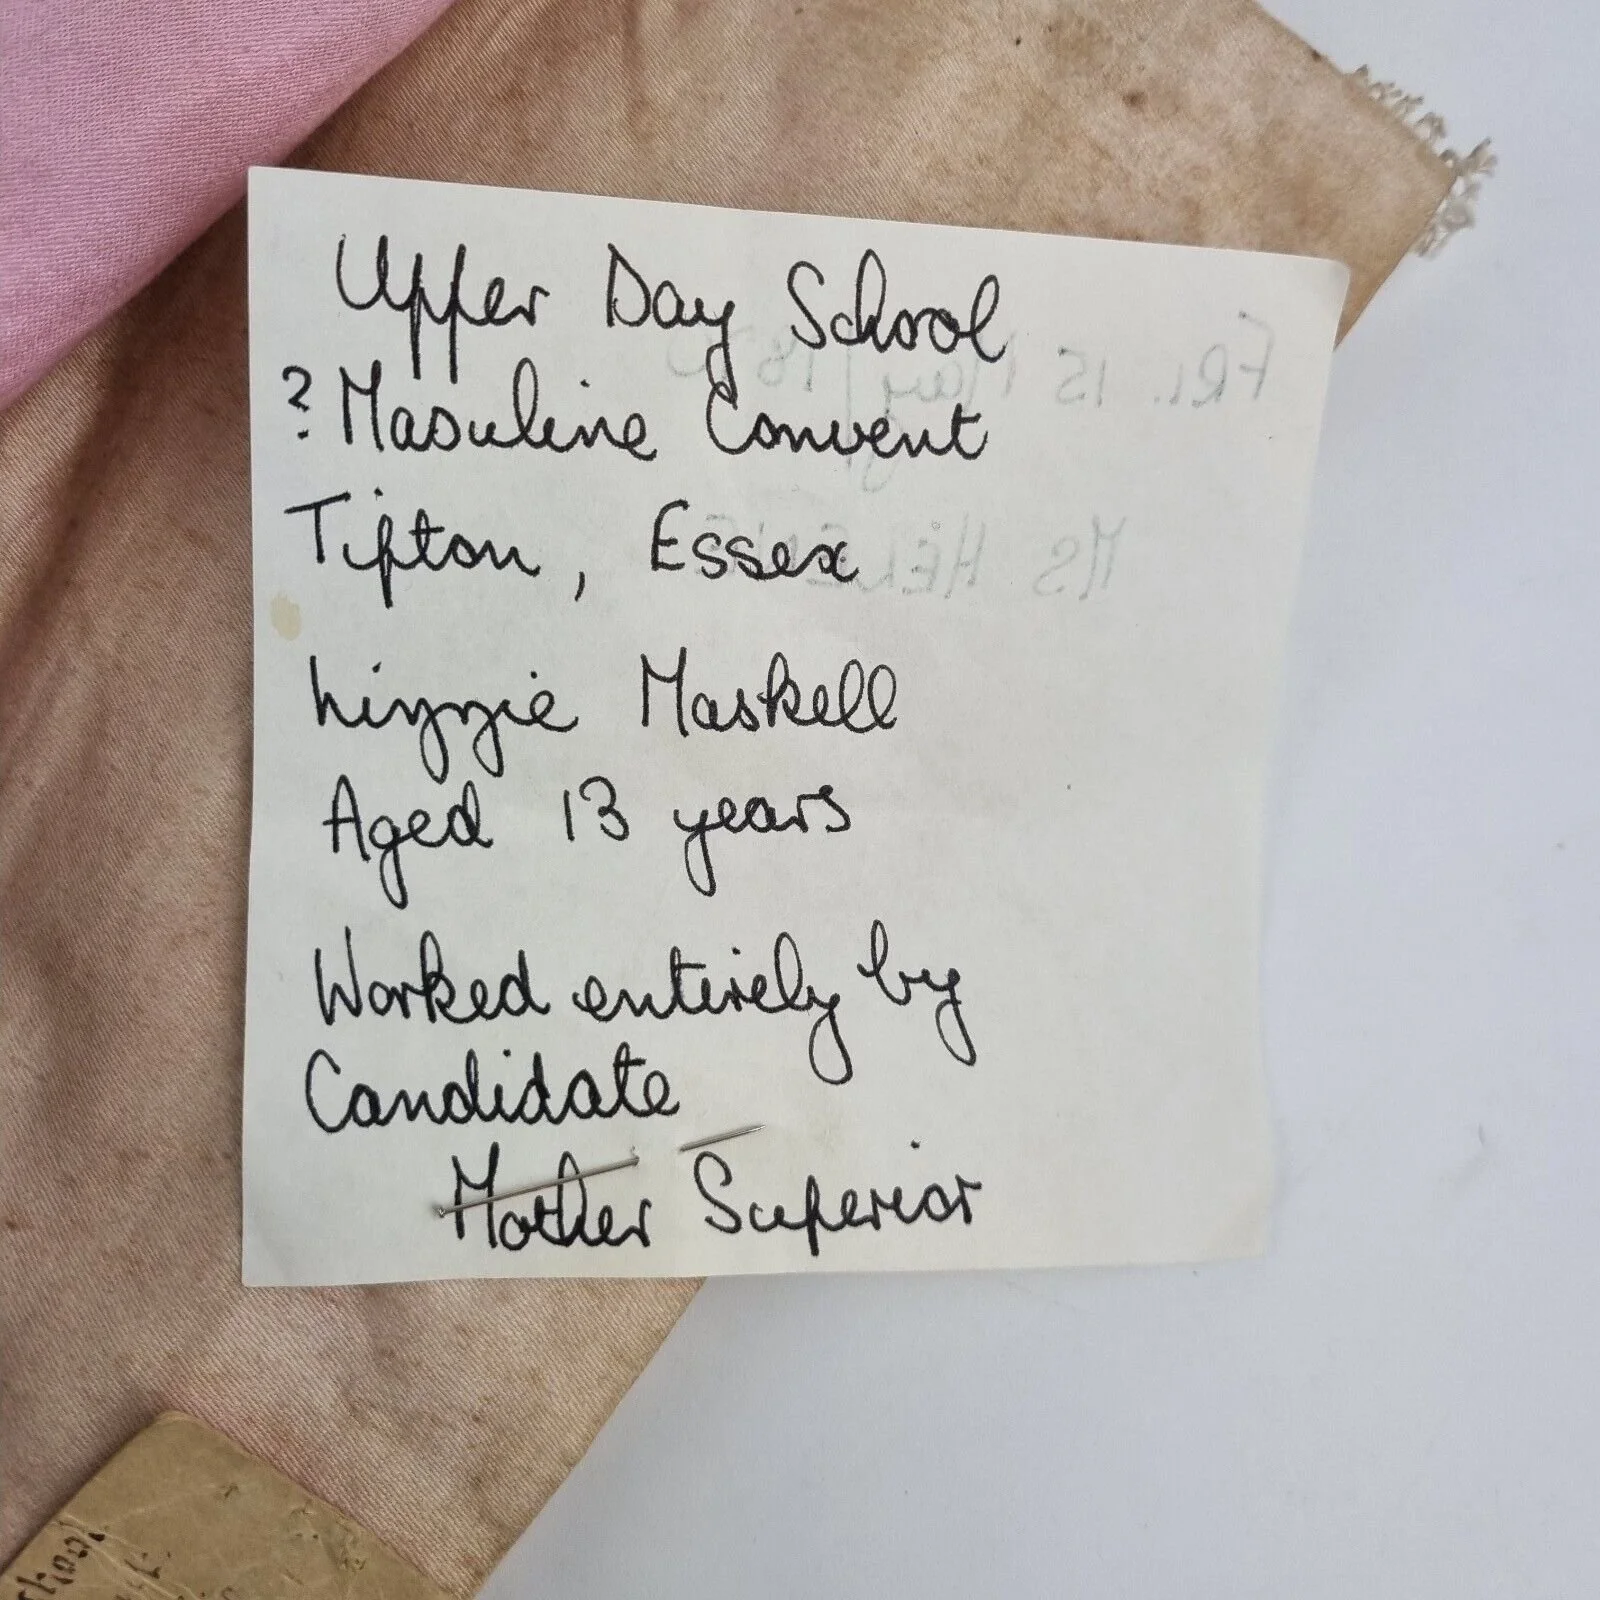 Upper Day School
? Masuline Convent
Tipton, Essex
Lizzie Maskell
Aged 13 years
Worked entirely by
Candidate
Mother Superior
FRI. 15 May
MS